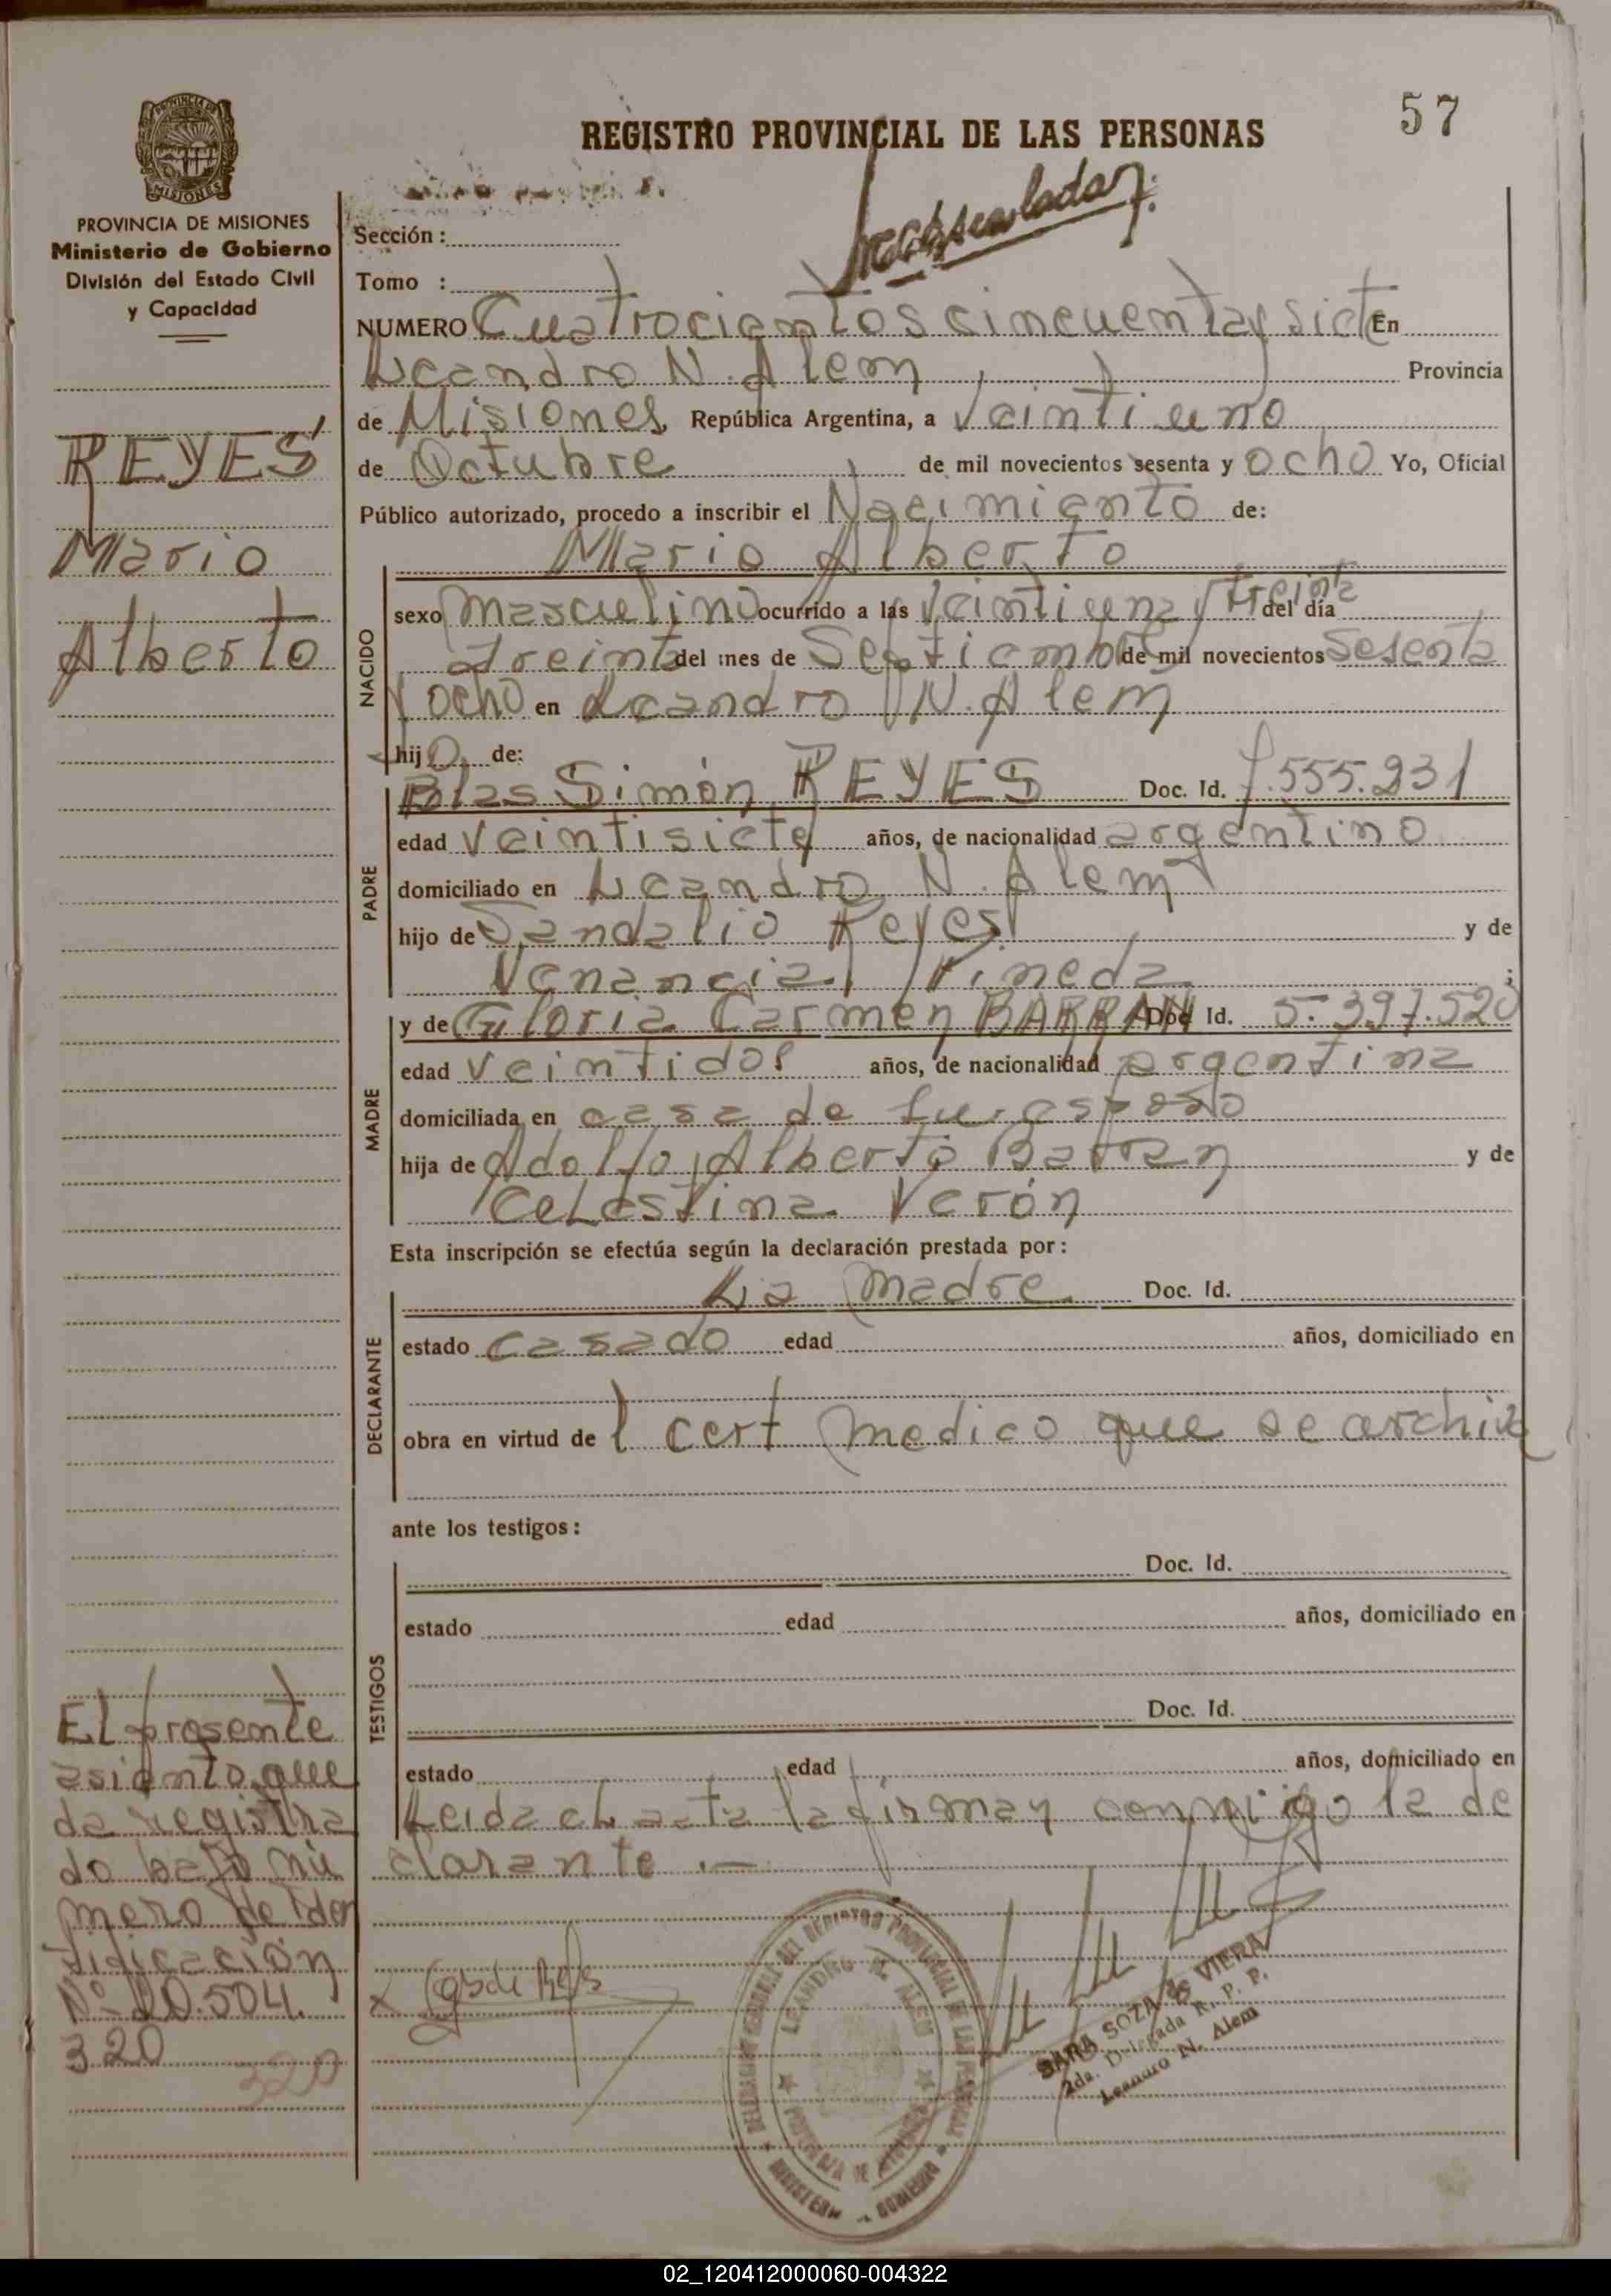 57
REGISTRO PROVINCIAL DE LAS PERSONAS
PROVINCIA DE MISIONES
MISIONES
PROVINCIA DE MISIONES
Ministerio de Gobierno
División del Estado Civil
y Capacidad
REYES
Mario
Alberto
El presente
asiento que
da registra
do bajo nú
mero de iden
tificación
Nº 20.504.
320
320
Sección :
Tomo :
NUMERO Cuatrocientos cincuenta y siete En
Leandro N. Alem Provincia
de Misiones, República Argentina, a Veintiuno
de Octubre de mil novecientos sesenta y ocho Yo, Oficial
Público autorizado, procedo a inscribir el Nacimiento de:
Mario Alberto
NACIDO
sexo masculino ocurrido a las veintiuna y treinta del día
treinta del mes de Septiembre de mil novecientos sesenta
y ocho en Leandro N. Alem
hijo de:
PADRE
Blas Simón REYES Doc. Id. 7.555.231
edad veintisiete años, de nacionalidad argentino
domiciliado en Leandro N. Alem
hijo de Sandalio Reyes y de
Venancia Pineda ;
MADRE
y de Gloria Carmen BARRAN Doc. Id. 5.397.520
edad veintidos años, de nacionalidad argentina
domiciliada en casa de su esposo
hija de Adolfo Alberto Barran y de
Celestina Verón
Esta inscripción se efectúa según la declaración prestada por :
DECLARANTE
La madre Doc. Id.
estado casado edad años, domiciliado en
obra en virtud de l cert medico que se archiva
ante los testigos :
TESTIGOS
Doc. Id.
estado edad años, domiciliado en
Doc. Id.
estado edad años, domiciliado en
Leida el acta la firman conmigo la de
clarante .—
LEANDRO N. ALEM
SARA SOZA de VIERA
2da. Delegada R. P. P.
Leandro N. Alem
02_120412000060-004322